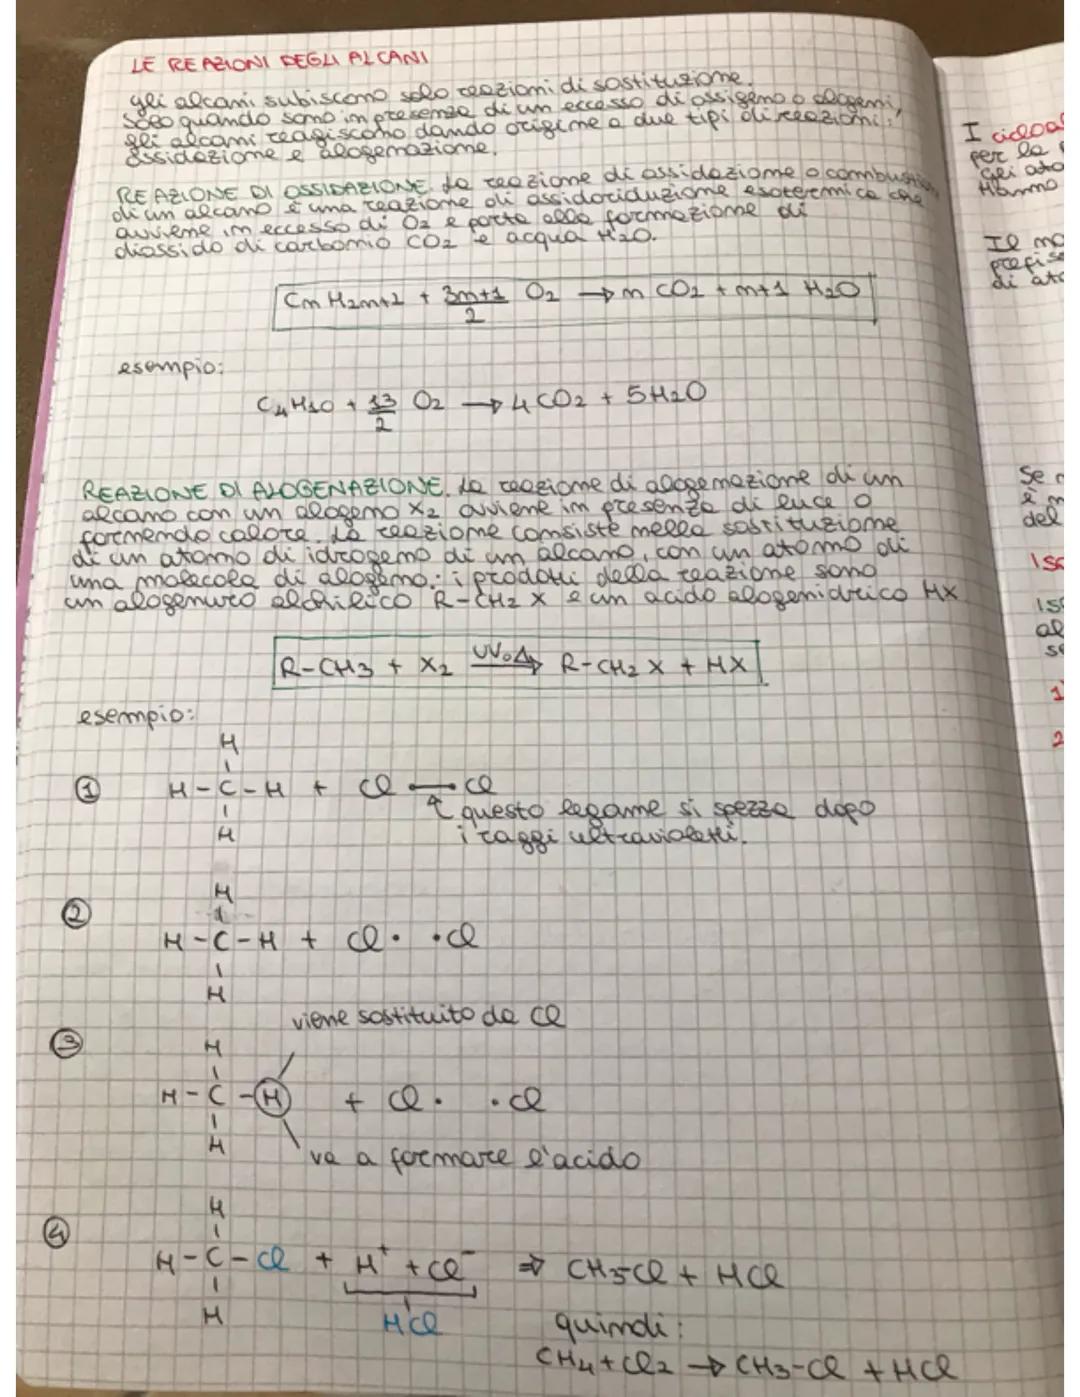 LE REAZIONI DEGLI ALCANI
gli alcani subiscono solo reazioni di sostituzione.
Solo quando sono in presenza di un eccesso di ossigeno o alogeni,
gli alcani reagiscono dando origine a due tipi di reazioni:
ossidazione e alogenazione.
REAZIONE DI OSSIDAZIONE. La reazione di ossidazione o combustione
di un alcano è una reazione di ossidoriduzione esotermica che
avviene in eccesso di O2 e porta alla formazione di
diossido di carbonio CO2 e acqua H2O.
CnH2n+2 + 3n+1/2 O2 → n CO2 + n+1 H2O
esempio:
C4H10 + 13/2 O2 → 4CO2 + 5H2O
REAZIONE DI ALOGENAZIONE. La reazione di alogenazione di un
alcano con un alogeno X2 avviene in presenza di luce o
fornendo calore. La reazione consiste nella sostituzione
di un atomo di idrogeno di un alcano, con un atomo di
una molecola di alogeno: i prodotti della reazione sono
un alogenuro alchilico R-CH2X e un acido alogenidrico HX
R-CH3 + X2 UV o Δ → R-CH2X + HX
esempio:
H
① H-C-H + Cl — Cl
H
↑ questo legame si spezza dopo
i raggi ultravioletti.
②
H
H-C-H + Cl· ·Cl
H
viene sostituito da Cl
③
H
H-C-H + Cl· ·Cl
H
va a formare l'acido
④
H
H-C-Cl + H⁺ + Cl⁻ ⇒ CH3Cl + HCl
H
HCl
quindi:
CH4 + Cl2 → CH3-Cl + HCl
I cicloal
per la
gli ato
Hanno
Il mo
prefiss
di ato
Se
è
del
Iso
Iso
al
se
1
2